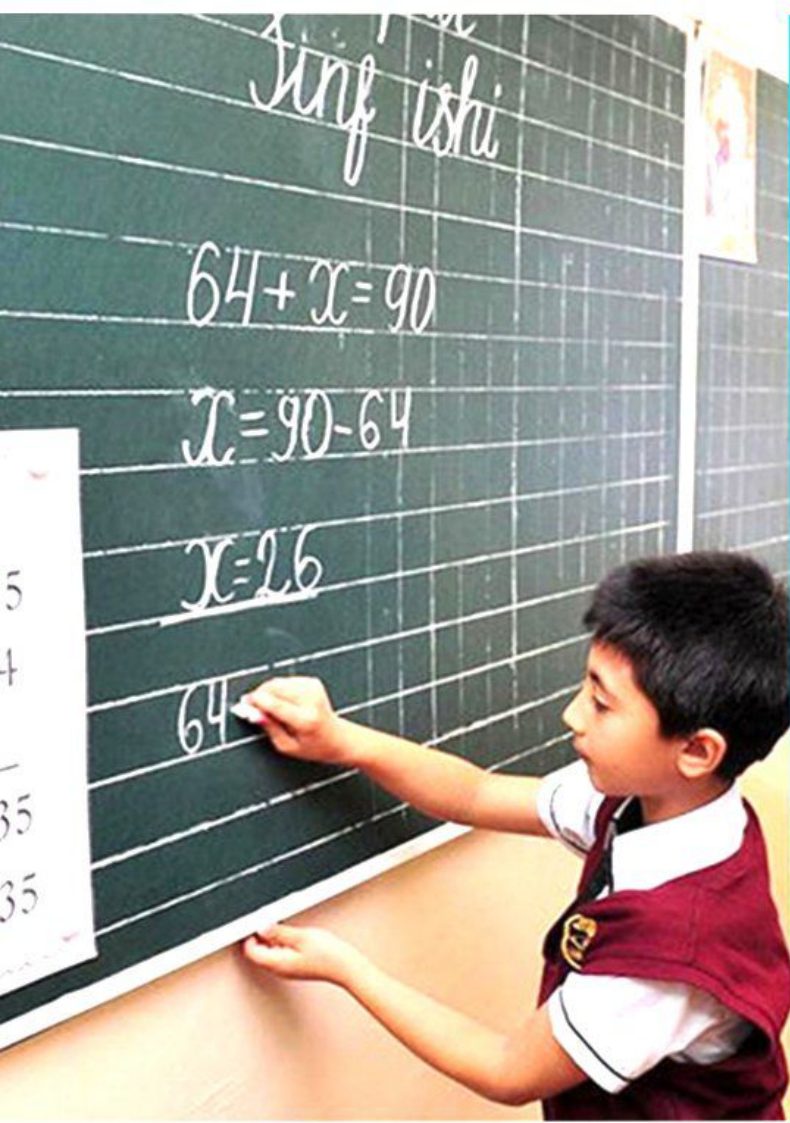 Sinf ishi
64+x=90
x=90-64
x=26
64
5
4
35
35